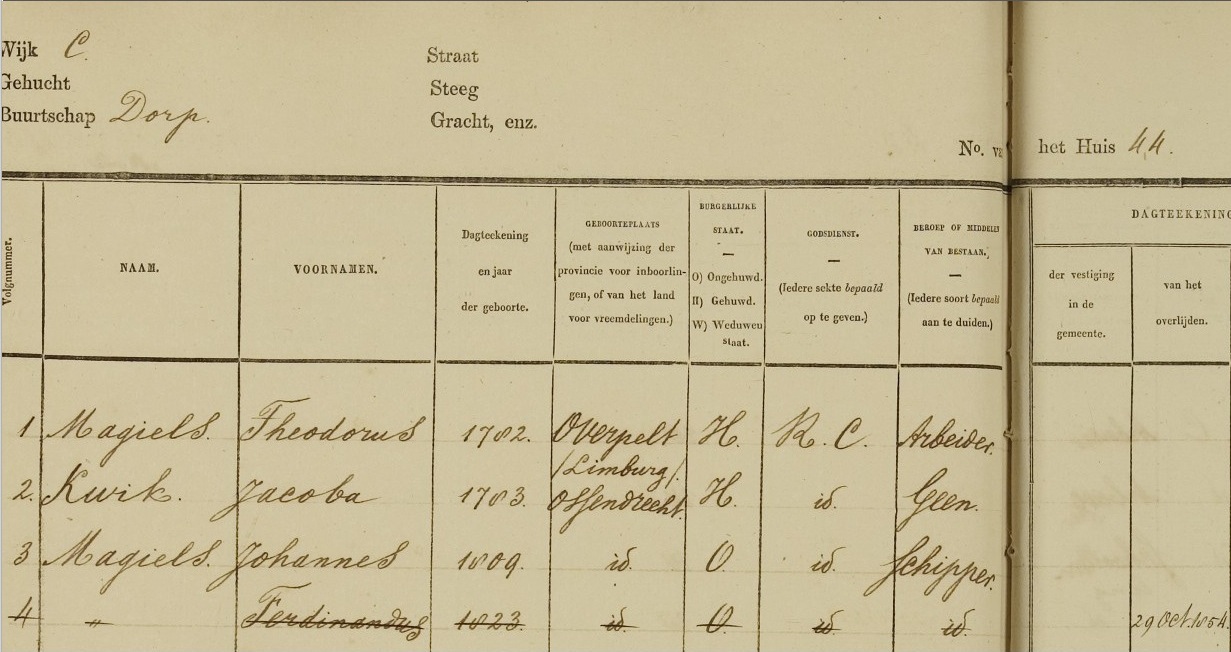 Wijk C.
Straat
Gehucht
Steeg
Buurtschap Dorp.
Gracht, enz.
No. va het Huis 44.
Volgnummer.
NAAM.
VOORNAMEN.
Dagteekening
en jaar
der geboorte.
GEBOORTEPLAATS
(met aanwijzing der
provincie voor inboorlin-
gen, of van het land
voor vreemdelingen.)
BURGERLIJKE
STAAT.
O) Ongehuwd.
H) Gehuwd.
W) Weduwen
staat.
GODSDIENST.
(Iedere sekte bepaald
op te geven.)
BEROEP OF MIDDELEN
VAN BESTAAN.
(Iedere soort bepaald
aan te duiden.)
DAGTEEKENING
der vestiging
in de
gemeente.
van het
overlijden.
1 Magiels. Theodorus 1782. Overpelt H. R. C. Arbeider.
/Limburg/.
2. Kwik. Jacoba 1783. Ossendrecht. H. id. Geen.
3 Magiels. Johannes 1809. id. O. id. Schipper.
4 " Ferdinandus 1823. id. O. id. id. 29 Oct. 1854.